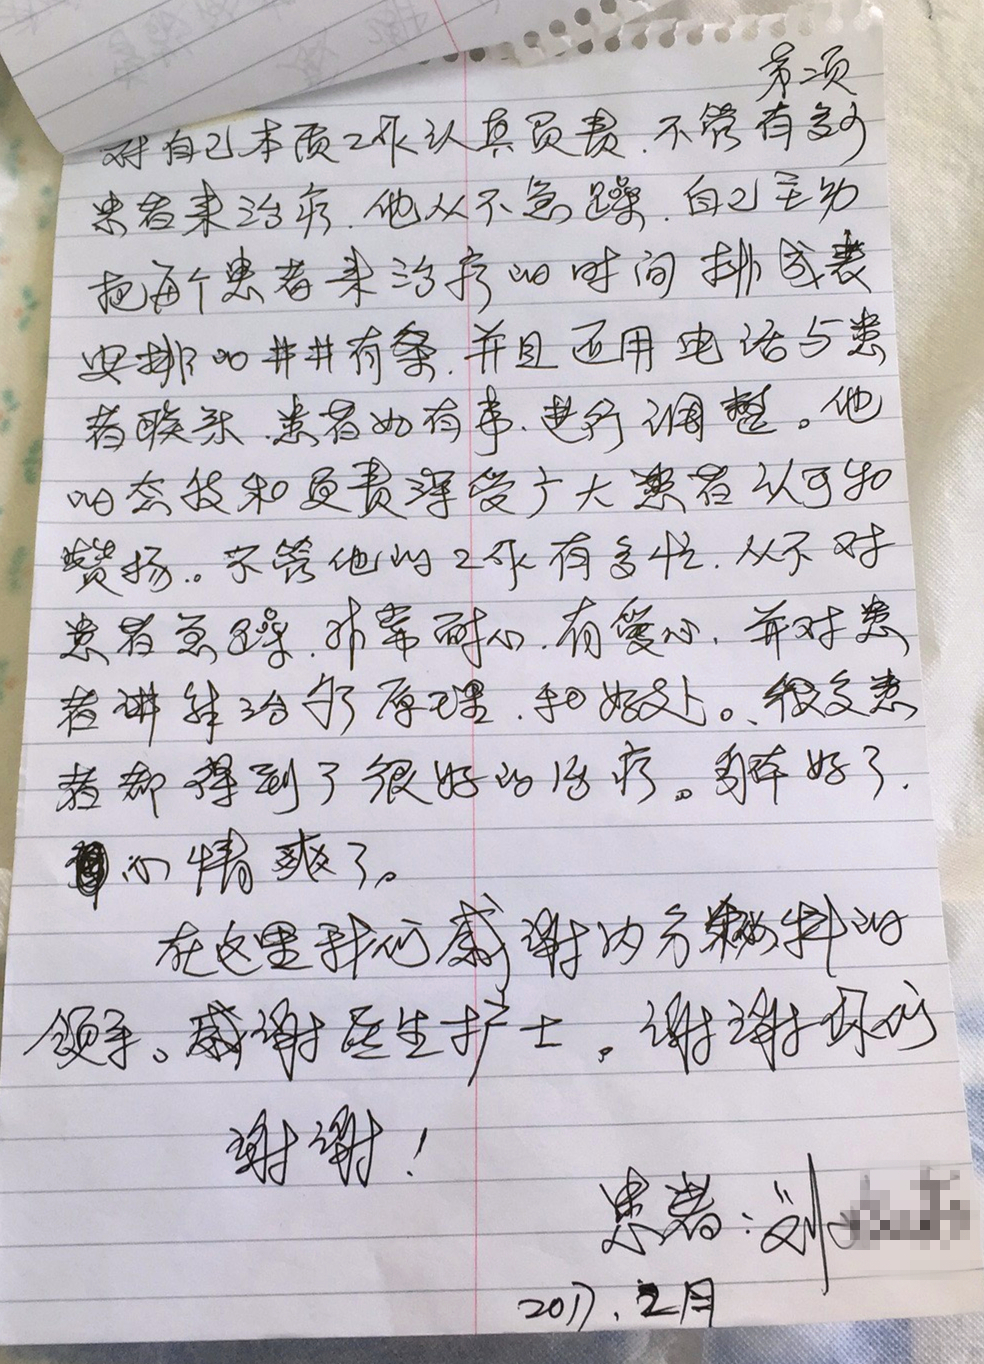 第二页
对自己本质工作认真负责.不管有多少
患者来治疗.他从不急躁.自己主动
把每个患者来治疗的时间排成表
安排的井井有条.并且还用电话与患
者联系.患者如有事.进行调整。他
的态技和负责深受广大患者认可和
赞扬。不管他的工作有多忙.从不对
患者急躁.非常耐心.有爱心.并对患
者讲解治疗原理.和好处。很多患
者都得到了很好的治疗。身体好了.
心情爽了。
在这里我们感谢内分泌科的
领导。感谢医生护士。谢谢你们
谢谢!
患者:刘
2017.2月